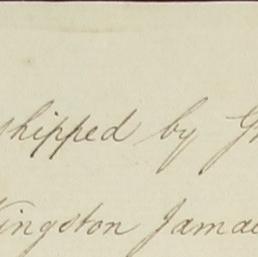 shipped by
Kingston Jamai